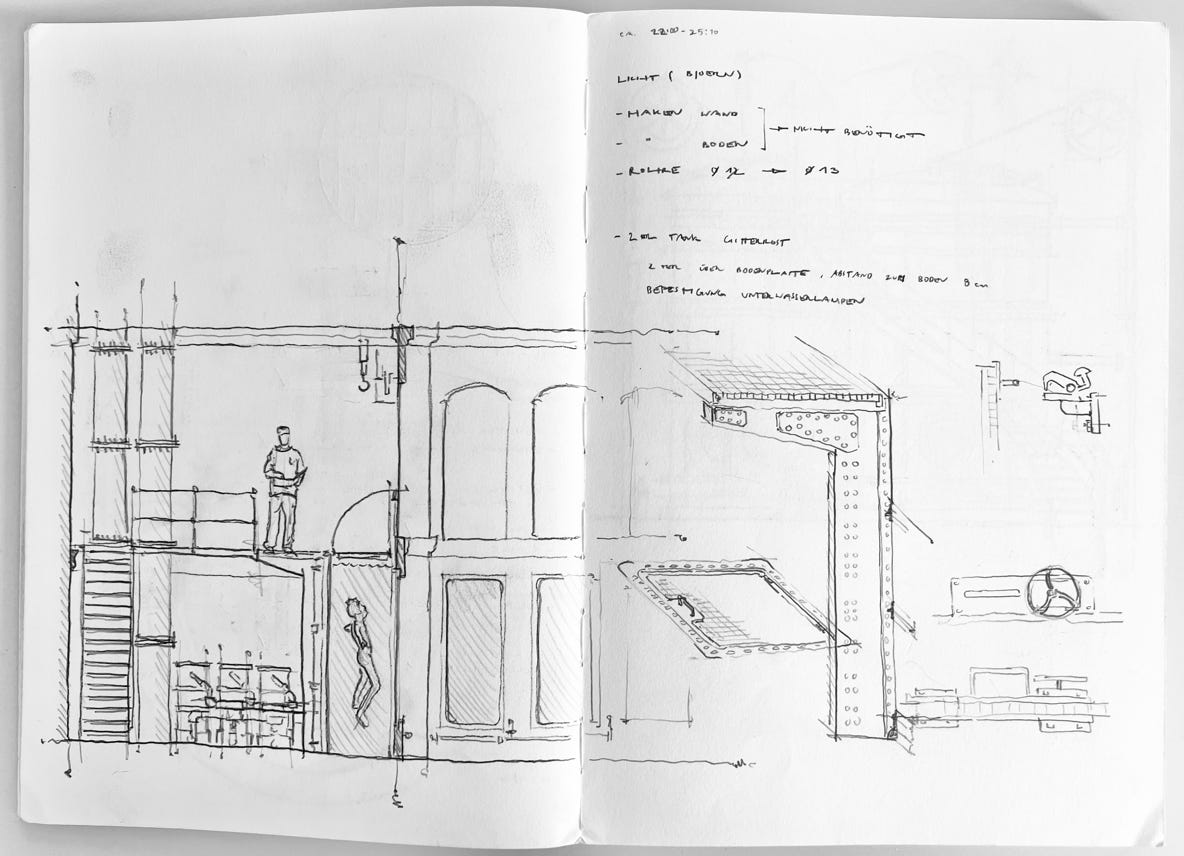 ca. 22:00 - 25:10
LICHT (BJOERN)
- HAKEN WAND
- " BODEN → NICHT BENÖTIGT
- ROHRE Ø 12 → Ø 13
- 2ER TANK GITTERROST
2 TEIL ÜBER BODENPLATTE, ABSTAND ZUM BODEN 8 cm
BEFESTIGUNG UNTERWASSERLAMPEN